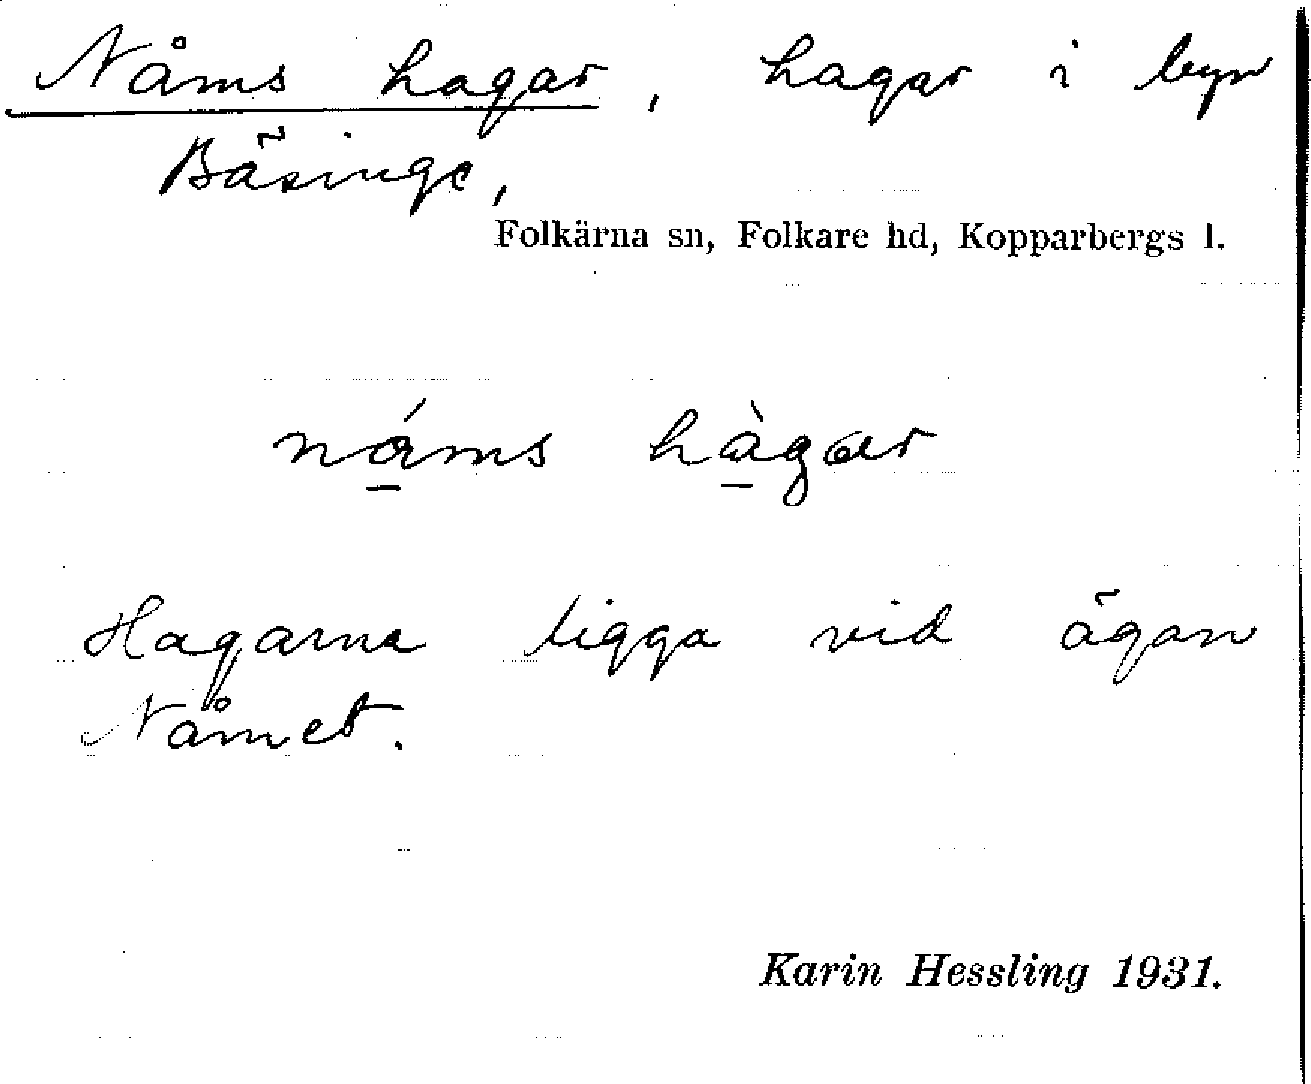 Nåms hagar, hagar i byn
Bäsinge,
Folkärna sn, Folkare hd, Kopparbergs l.
nάms hàgar
Hagarna ligga vid ägan
Nåmet.
Karin Hessling 1931.